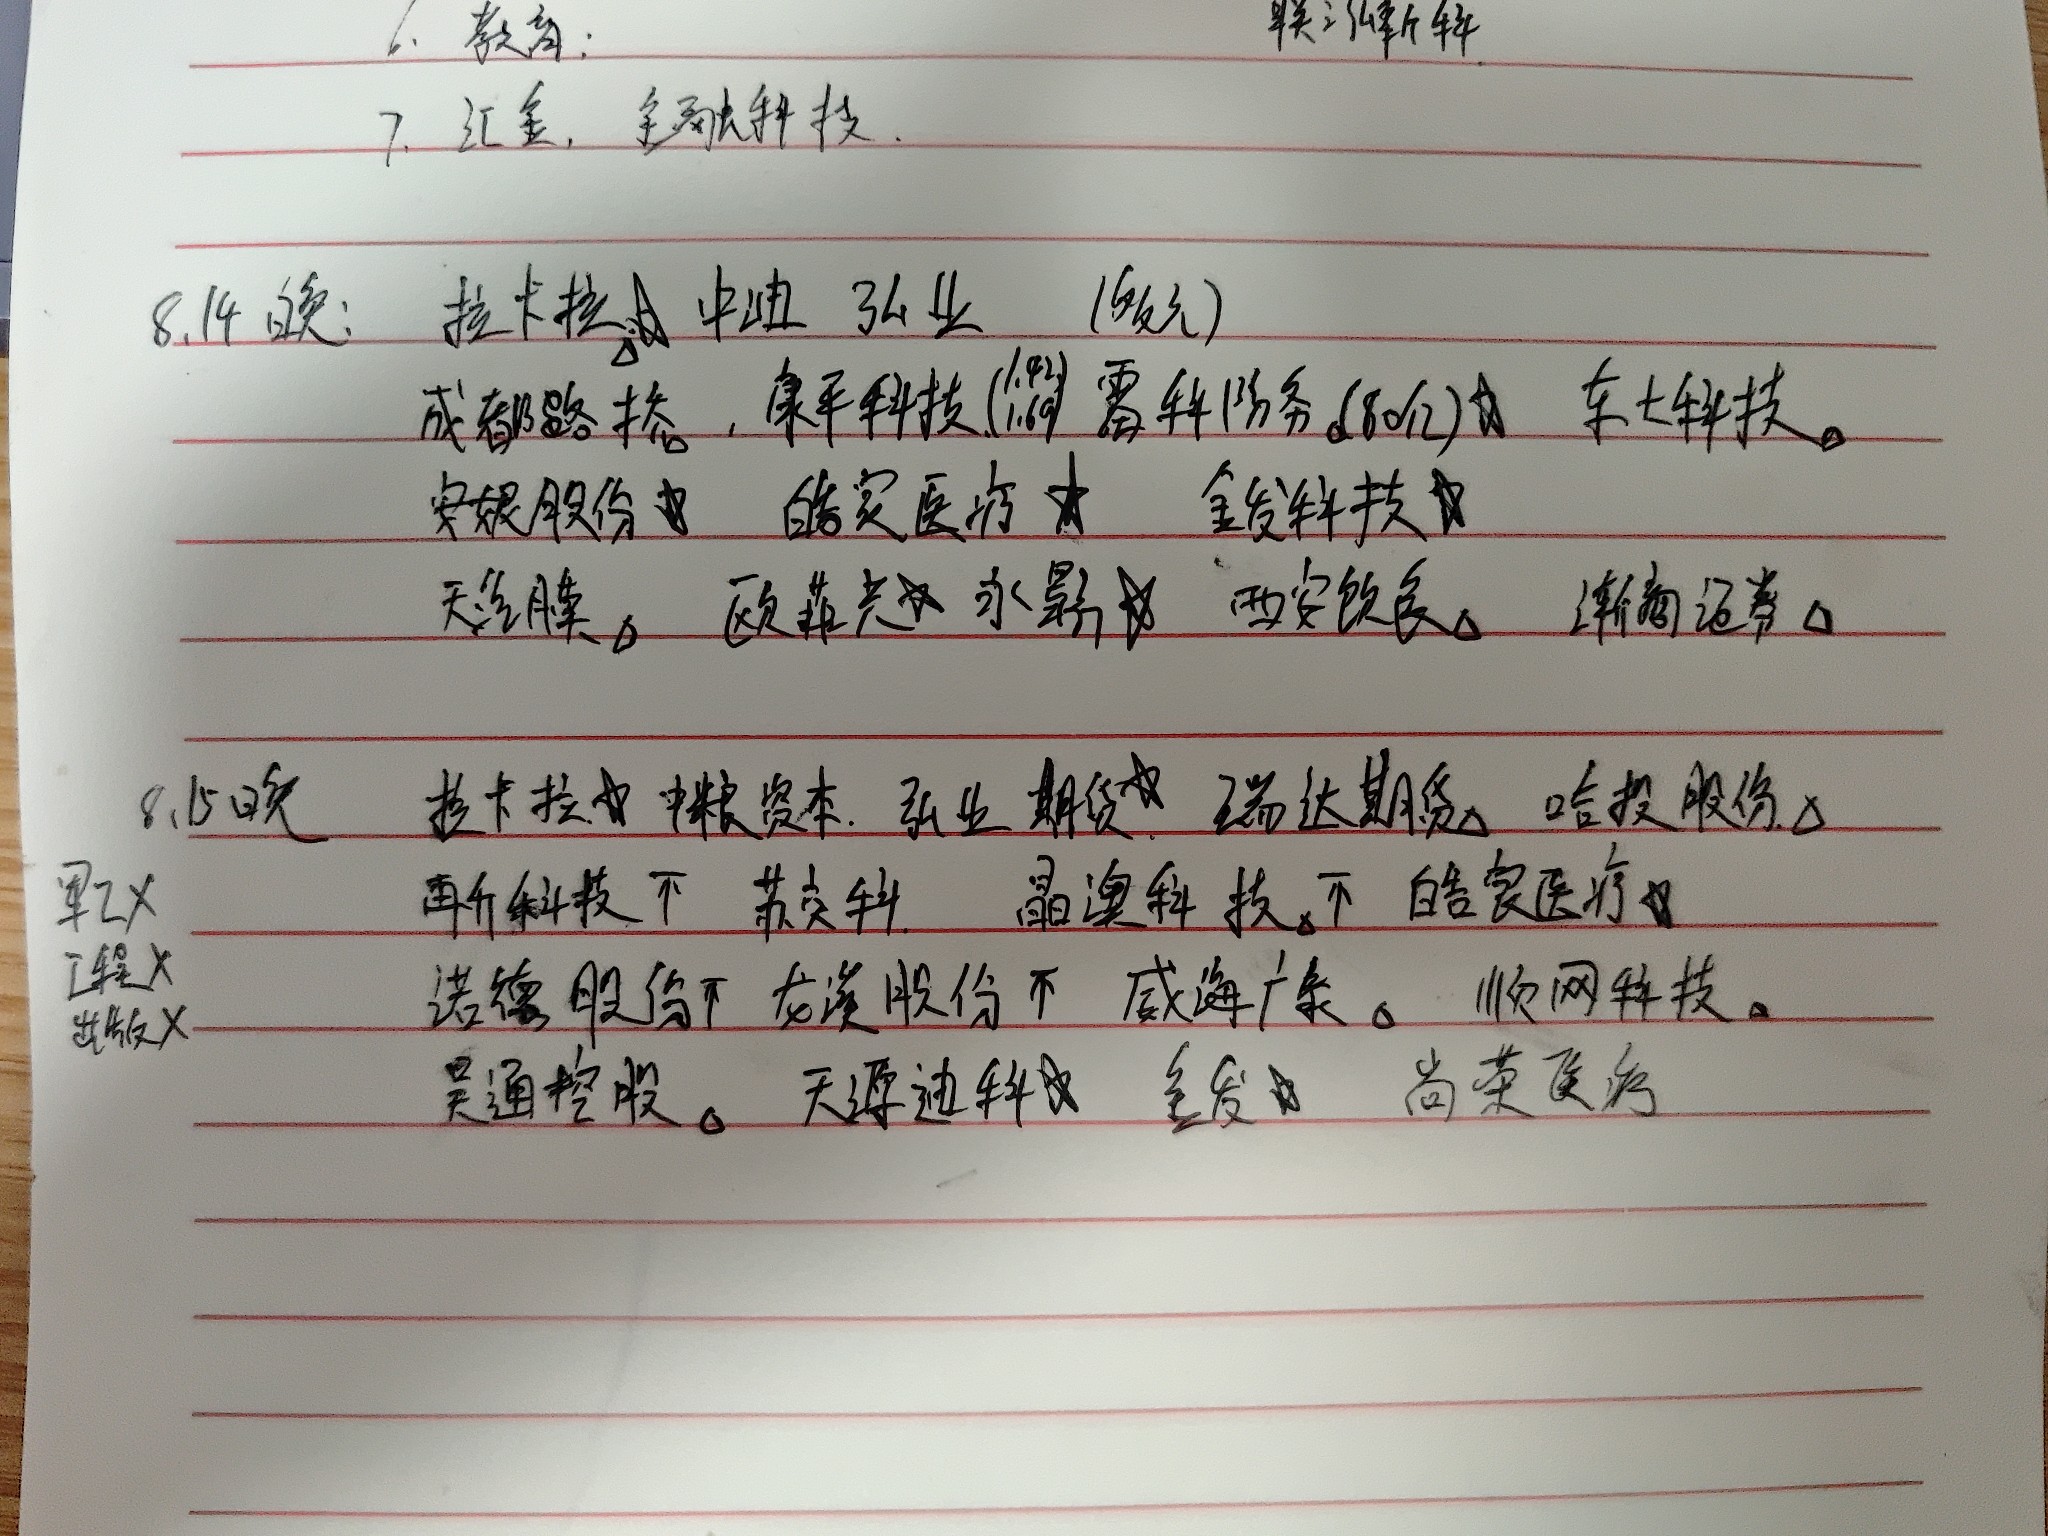 6. 教育: 联泓新科
7. 汇金, 金融科技.
8.14晚: 拉卡拉△☆ 中迪 弘业 (饭元)
成都路桥△, 康平科技(1.42 1.69) 雷科防务△(80亿)☆ 东土科技△
安妮股份☆ 皓宸医疗☆ 金发科技☆
天洽膜△ 欧菲光☆ 水晶☆ 西安饮食△ 浙商证券△
8.15晚 拉卡拉☆ 中粮资本. 弘业期货☆ 瑞达期货△ 哈投股份△
军工X 再升科技不 苏交科 晶澳科技△不 皓宸医疗☆
工程X 诺德股份不 龙溪股份不 威海广泰△ 顺网科技△
出版X 吴通控股△ 天源迪科☆ 金发☆ 尚荣医疗